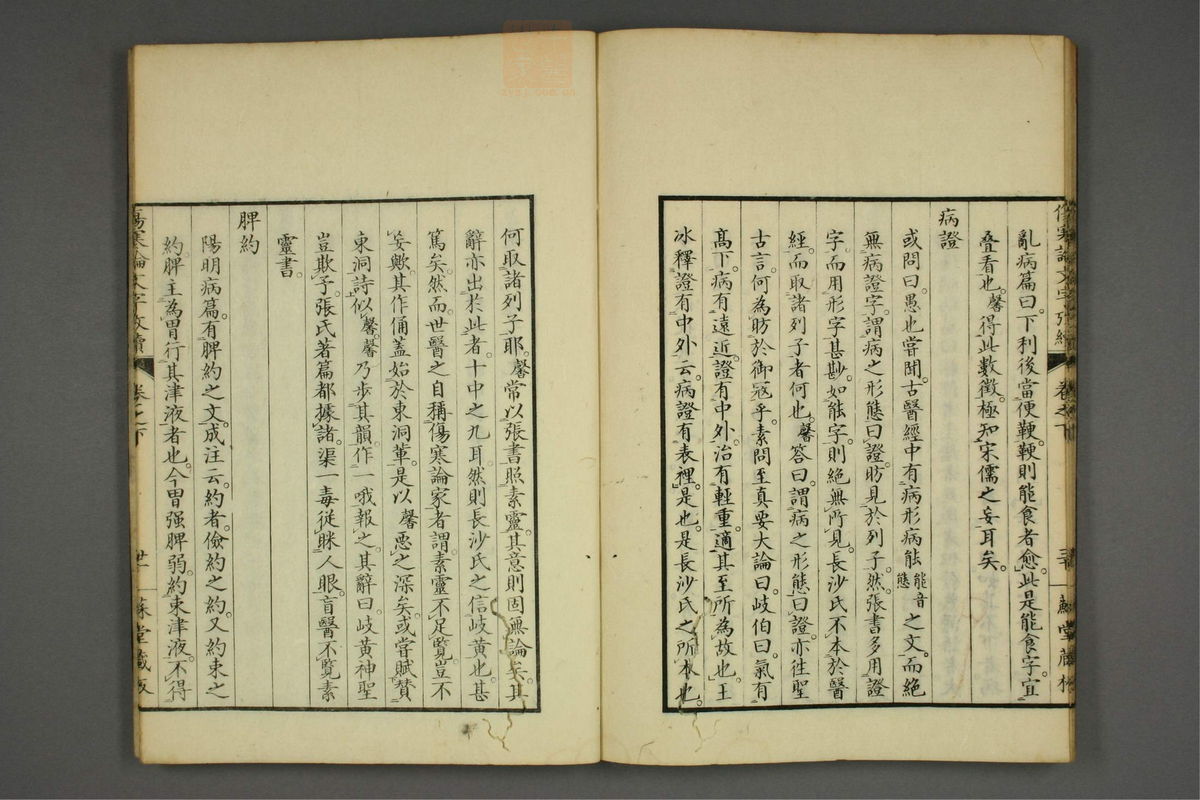 亂病篇曰。下利後當便鞕。鞕則能食者愈。此是能食字。宜
叠看也。馨得此數徵。極知宋儒之妄耳矣。
病證
或問曰。愚也嘗聞。古醫經中有病形病能能音態之文。而絕
無病證字。謂病之形態曰證。昉見於列子。然張書多用證
字。而用形字甚尠。如能字則絕無所見。長沙氏不本於醫
經。而取諸列子者何也。馨答曰。謂病之形態曰證。亦往聖
古言。何為昉於御冦乎。素問至真要大論曰。岐伯曰。氣有
高下。病有遠近。證有中外。治有輕重。適其至所為故也。王
冰釋證有中外云。病證有表裡。是也。是長沙氏之所本也。
何取諸列子耶。馨常以張書照素靈。其意則固無論矣。其
辭亦出於此者。十中之九耳。然則長沙氏之信岐黃也。甚
篤矣。然而世醫之自稱傷寒論家者。謂素靈不足覽。豈不
妄歟。其作俑蓋始於東洞輩。是以馨惡之深矣。或嘗賦贊
東洞詩。似馨。馨乃步其韻。作一哦報之。其辭曰。岐黃神聖
豈欺予。張氏著篇都據諸。渠一毒從眯人眼。盲醫不覽素
靈書。
脾約
陽明病篇。有脾約之文。成注云。約者。儉約之約。又約束之
約。脾主為胃行其津液者也。今胃强脾弱。約束津液。不得
卷之下